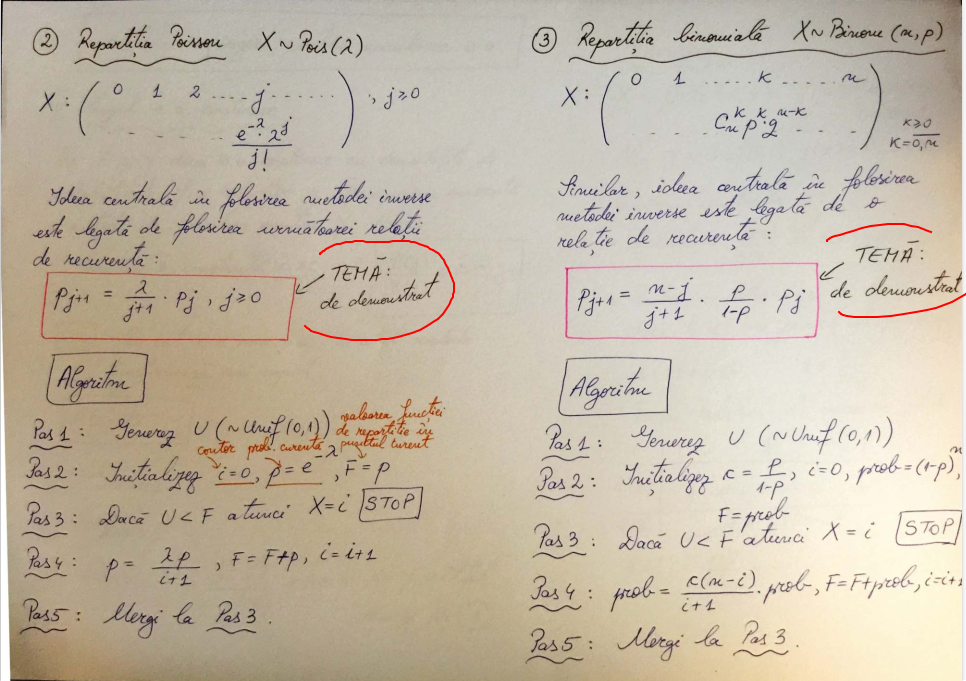 ② Repartiția Poisson X ~ Pois(λ)
X : ( 0 1 2 .... j ....... ) , j ≥ 0
( ..... e^{-λ} · λ^j / j! ..... )
Ideea centrală în folosirea metodei inverse
este legată de folosirea următoarei relații
de recurență :
p_{j+1} = λ/(j+1) · p_j , j ≥ 0
TEMĂ :
de demonstrat
Algoritm
Pas 1 : Generez U (~ Unif(0,1))
valoarea funcției
de repartiție în
punctul curent
contor prob. curentă
Pas 2 : Inițializez i=0, p = e^{-λ}, F = p
Pas 3 : Dacă U < F atunci X = i STOP
Pas 4 : p = λp/(i+1) , F = F+p, i = i+1
Pas 5 : Mergi la Pas 3 .
③ Repartiția binomială X ~ Binom (n, p)
X : ( 0 1 ..... k ....... n )
( ..... C_n^k p^k · q^{n-k} ..... )
k ≥ 0
k = \overline{0,n}
Similar, ideea centrală în folosirea
metodei inverse este legată de o
relație de recurență :
p_{j+1} = (n-j)/(j+1) · p/(1-p) · p_j
TEMĂ :
de demonstrat
Algoritm
Pas 1 : Generez U (~ Unif(0,1))
Pas 2 : Inițializez c = p/(1-p), i=0, prob = (1-p)^n,
F = prob
Pas 3 : Dacă U < F atunci X = i STOP
Pas 4 : prob = c(n-i)/(i+1) · prob, F = F+prob, i = i+1
Pas 5 : Mergi la Pas 3 .